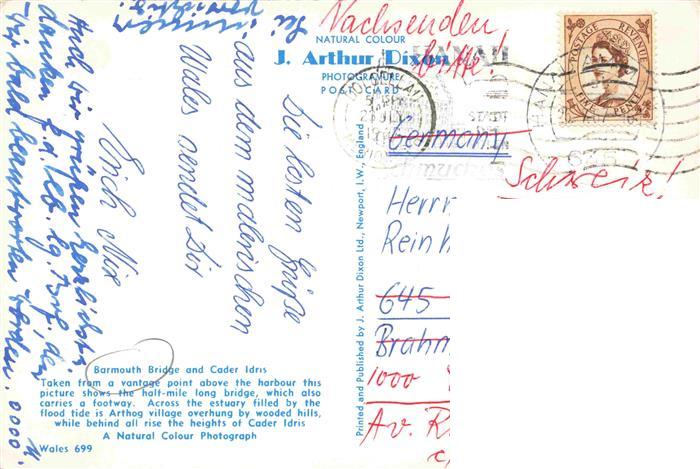 Nachsenden
bitte!
NATURAL COLOUR
J. Arthur Dixon
PHOTOGRAVURE
POST CARD
POSTAGE REVENUE
HANAU
Germany
Schweiz!
Herrn
Rein
645
Brahm
1000
Av. R
Die besten Grüße
aus dem malerischen
Wales sendet Dir
Erich Nix
Auch wir grüßen herzlichst
danken f. d. lb.
bald beantwortet werden.
Printed and Published by J. Arthur Dixon Ltd., Newport, I.W., England
Barmouth Bridge and Cader Idris
Taken from a vantage point above the harbour this
picture shows the half-mile long bridge, which also
carries a footway. Across the estuary filled by the
flood tide is Arthog village overhung by wooded hills,
while behind all rise the heights of Cader Idris
A Natural Colour Photograph
Wales 699